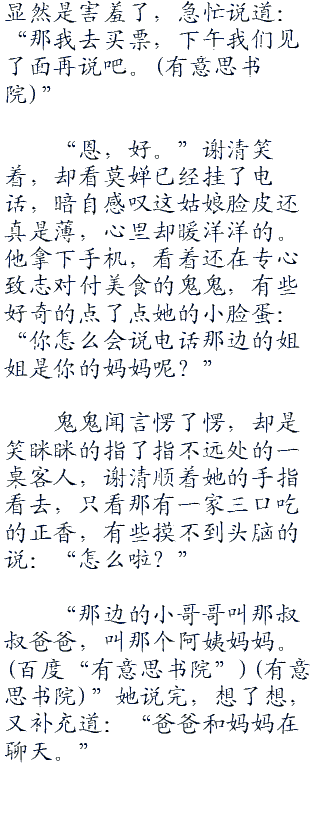 显然是害羞了，急忙说道：
“那我去买票，下午我们见
了面再说吧。(有意思书
院)”
“恩，好。”谢清笑
着，却看莫婵已经挂了电
话，暗自感叹这姑娘脸皮还
真是薄，心里却暖洋洋的。
他拿下手机，看着还在专心
致志对付美食的鬼鬼，有些
好奇的点了点她的小脸蛋：
“你怎么会说电话那边的姐
姐是你的妈妈呢？”
鬼鬼闻言愣了愣，却是
笑眯眯的指了指不远处的一
桌客人，谢清顺着她的手指
看去，只看那有一家三口吃
的正香，有些摸不到头脑的
说：“怎么啦？”
“那边的小哥哥叫那叔
叔爸爸，叫那个阿姨妈妈。
(百度“有意思书院”)(有意
思书院)”她说完，想了想，
又补充道：“爸爸和妈妈在
聊天。”